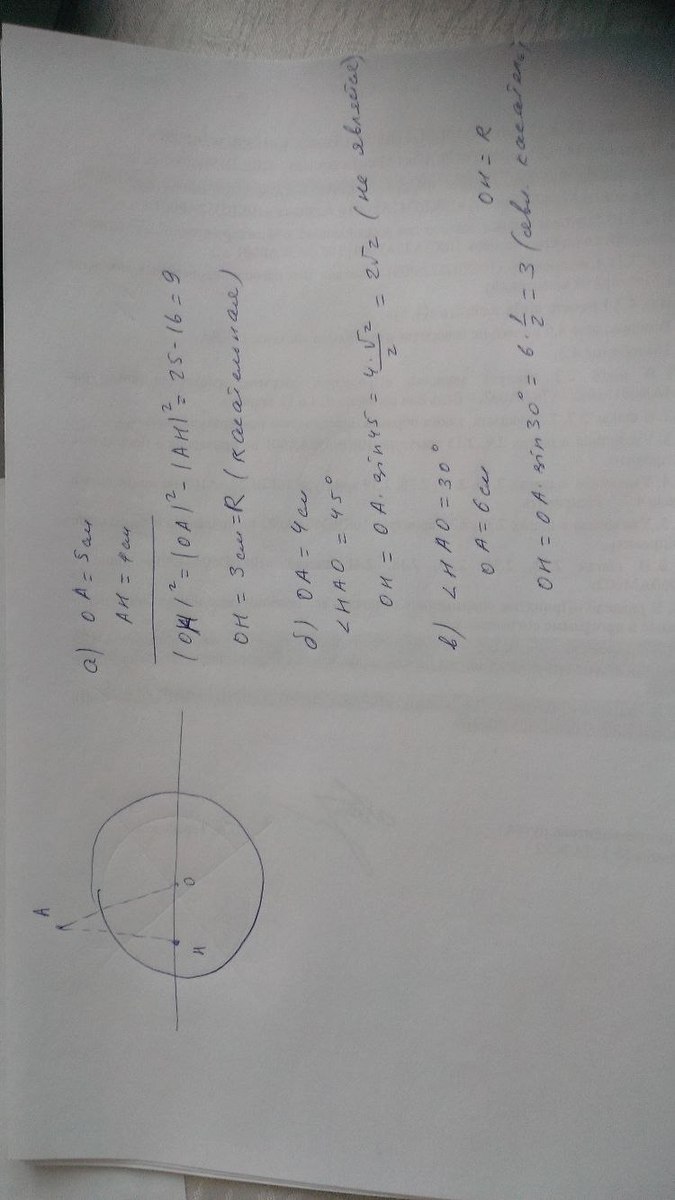 а) OA = 5 см
AH = 4 см
|OH|² = |OA|² - |AH|² = 25 - 16 = 9
OH = 3 см = R (касательная)
б) OA = 4 см
∠HAO = 45°
OH = OA · sin 45 = 4 · √2/2 = 2√2 (не является)
в) ∠HAO = 30°
OA = 6 см OH = R
OH = OA · sin 30° = 6 · 1/2 = 3 (явл. касательной
A
O
H